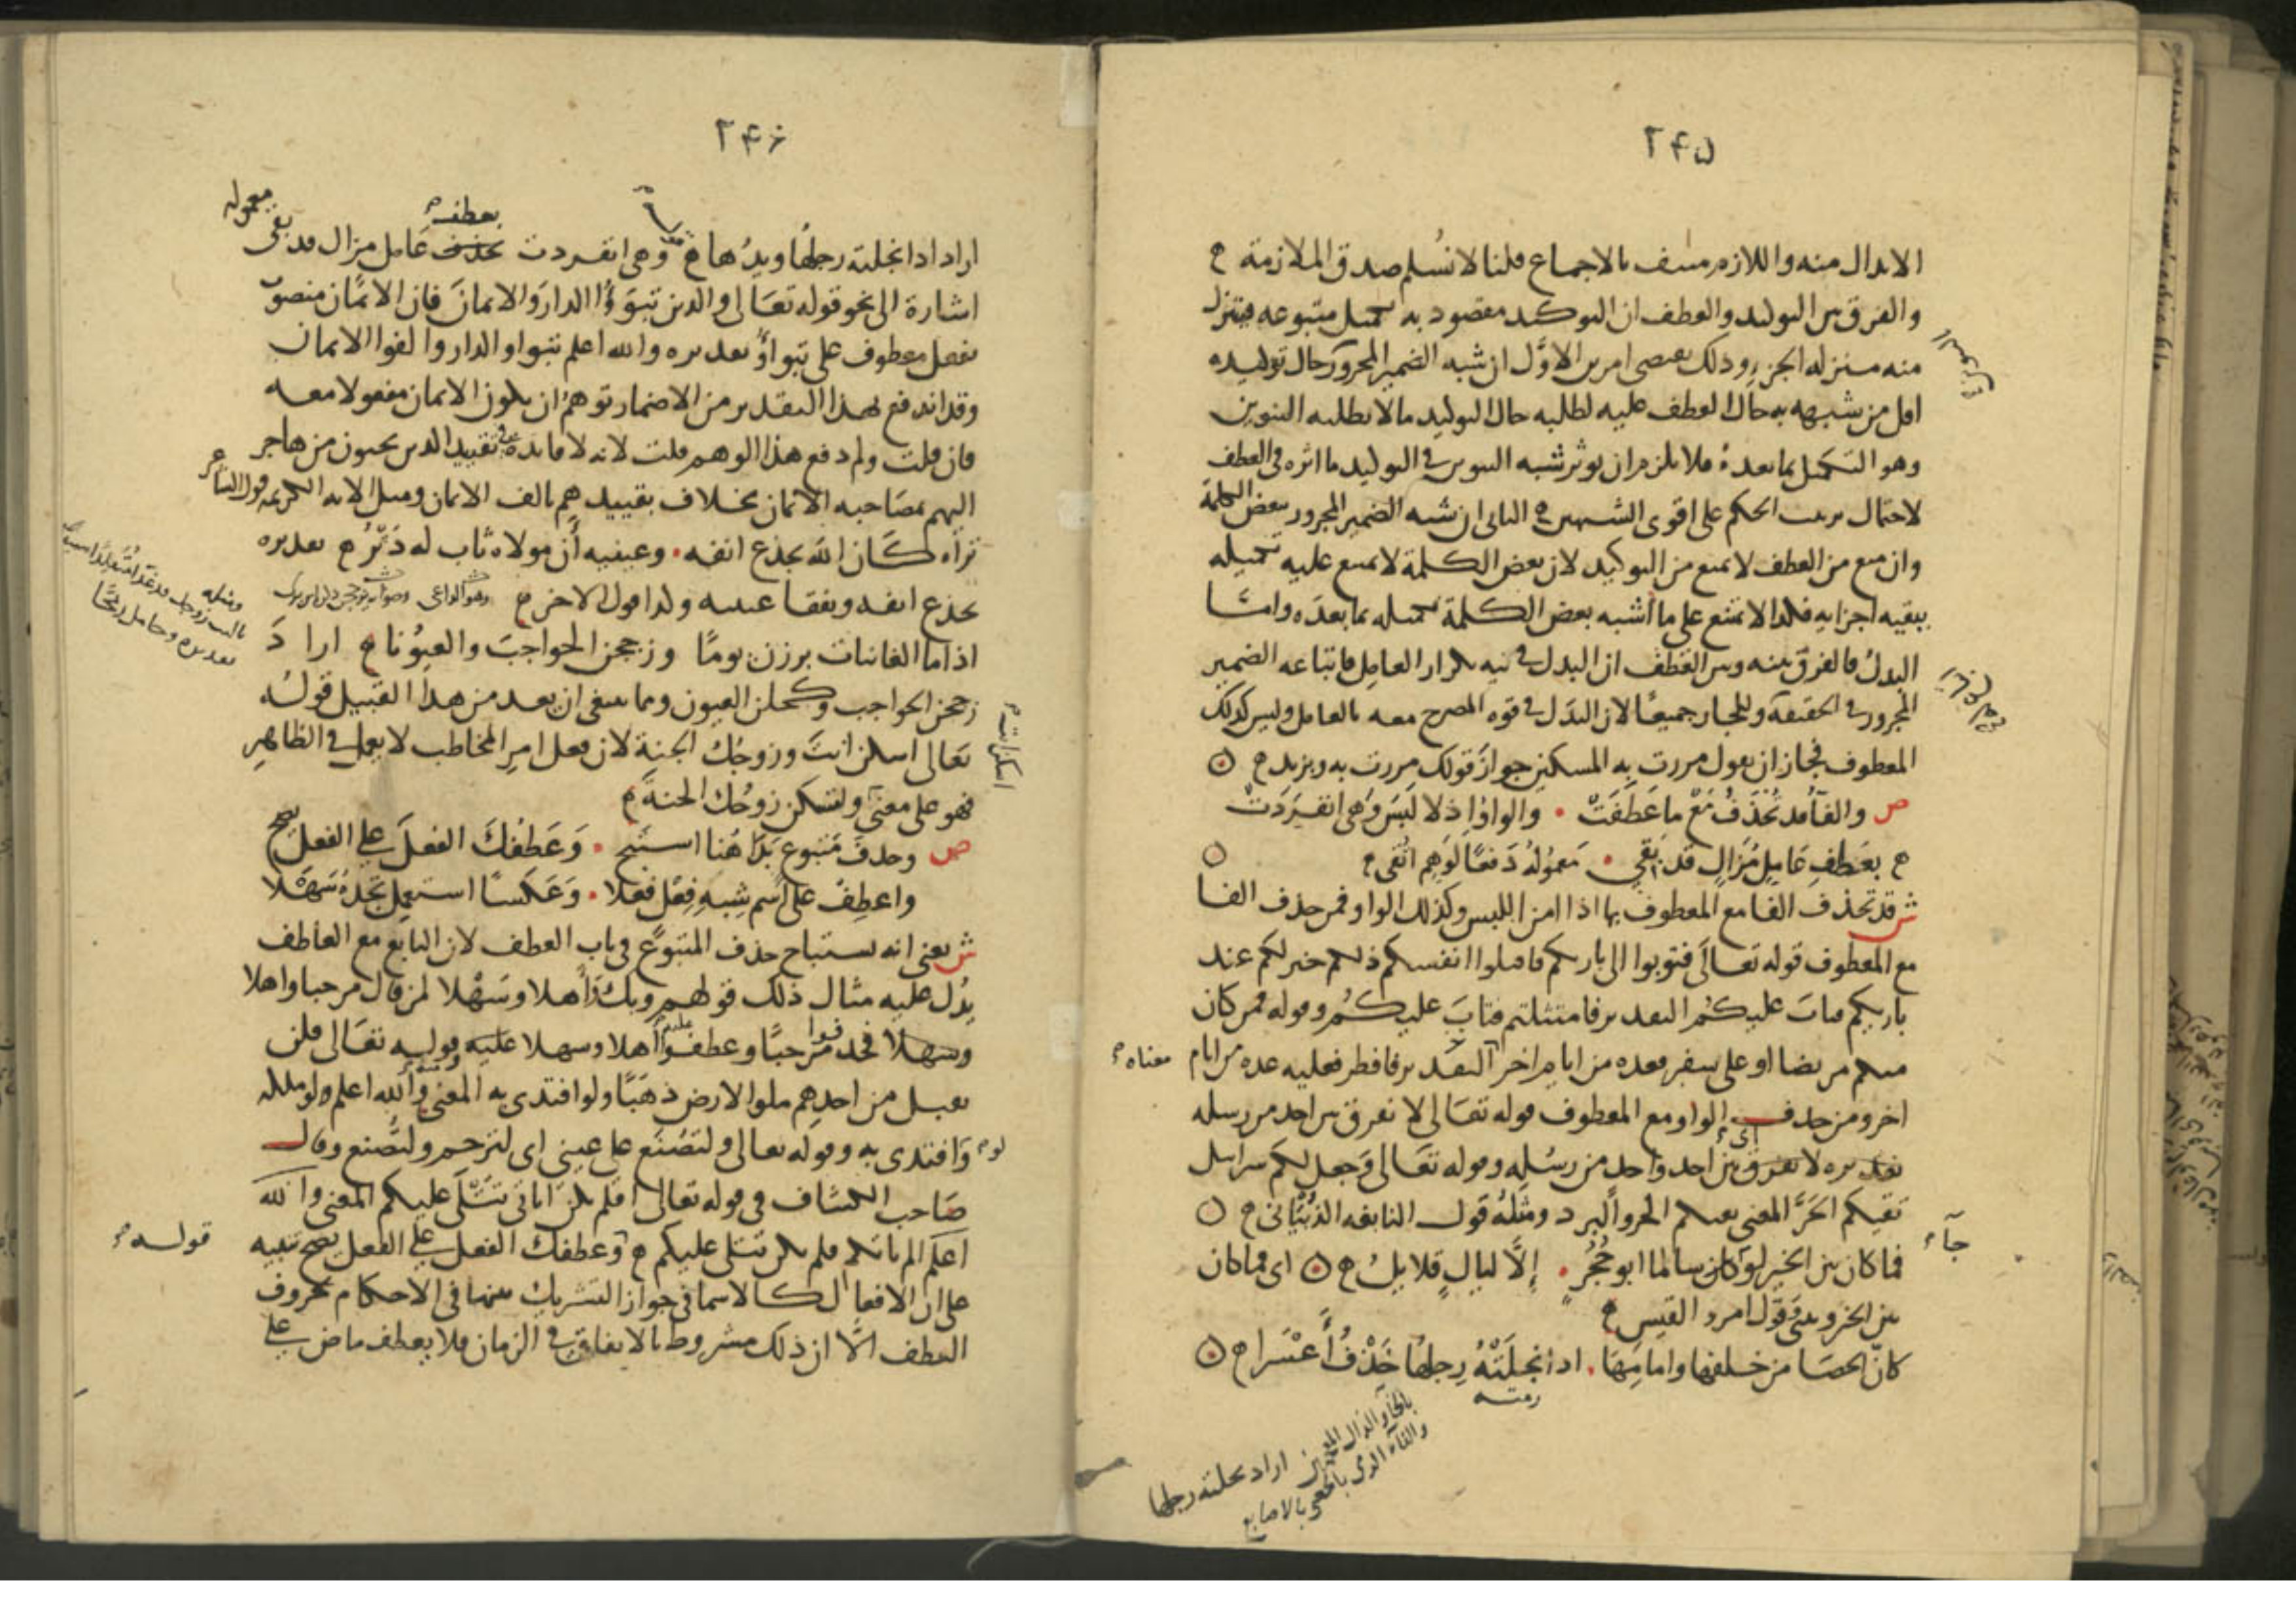 ٢٤٥
الابدال منه واللازم منتف بالاجماع قلنا لا نسلم صدق الملازمة
والفرق بين التوكيد والعطف ان التوكيد مقصود به تكميل متبوعه فيتنزل
منه منزله الجزء وذلك يقتضى امرين الاول ان شبه الضمير المجرور حال توكيده
اقل من شبهه به حال العطف عليه لطلبه حال التوكيد ما لا يطلبه التنوين
وهو التكميل بما بعده فلا يلزم ان يوثر شبه التنوين في التوكيد ما اثره في العطف
لاحتمال ترتب الحكم على اقوى الشبهين الثانى ان شبه الضمير المجرور ببعض الكلمة
وان منع من العطف لا يمنع من التوكيد لان بعض الكلمة لا يمتنع عليه تكميله
ببقيه اجزايه فكذا لا تمتنع على ما اشبه بعض الكلمة تكميله بما بعده واما
البدل فالفرق بينه وبين العطف ان البدل في نيه تكرار العامل فاتباعه الضمير
المجرور في الحقيقه وللجار جميعا لان البدل في قوه المصرح معه بالعامل وليس كذلك
المعطوف فجاز ان يقول مررت به المسكين جواز قولك مررت به وبزيد
ص والفا قد تحذف مع ما عطفت . والواو اذ لا لبس وهى انفردت
بعطف عامل مزال قد بقي . معموله دفعا لوهم اتقى
ش قد تحذف الفا مع المعطوف بها اذا امن اللبس وكذلك الواو فمن حذف الفا
مع المعطوف قوله تعالى فتوبوا الى باريكم فاقتلوا انفسكم ذلكم خير لكم عند
باريكم فتاب عليكم التقدير فامتثلتم فتاب عليكم وقوله فمن كان
منكم مريضا او على سفر فعده من ايام اخر التقدير فافطر فعليه عده من ايام
معناه
اخر ومن حذف الواو مع المعطوف قوله تعالى لا نفرق بين احد من رسله
تقديره لا نفرق بين احد واحد من رسله وقوله تعالى وجعل لكم سرابيل
تقيكم الحر المعنى تقيكم الحر والبرد ومثله قول النابغه الذبياني
فما كان بين الخير لو كان سالما ابو حجر . الا ليال قلايل اى فما كان
جآء
بين الخير وبينى وقول امرؤ القيس
كان الحصا من خلفها وامامها . اذا نجلته رجلها خذف اعسرا
رمته
بالخآ والذال
اراد نجلته رجلها
بالاصابع
٢٤٦
اراد اذا نجلته رجلها ويدها وهى انفردت بعطف عامل مزال قد بقى
معموله
اشارة الى نحو قوله تعالى والذين تبوؤا الدار والايمان فان الايمان منصوب
بفعل معطوف على تبواؤ تقديره والله اعلم تبواو الدار والفوا الايمان
وقد اندفع بهذا التقدير من الاضمار توهم ان يكون الايمان مفعولا معه
فان قلت ولم دفع هذا الوهم قلت لانه لا فايده في تقييد الذين يحبون من هاجر
اليهم بمصاحبه الايمان بخلاف تقييدهم بالف الايمان ومثل الايه الكريمه قول الشاعر
تراه كان الله يجدع انفه . وعينيه ان مولاه ثاب له دثر تقديره
يجدع انفه ويفقا عينيه ولذا قول الاخر
اذا ما الغانيات برزن يوما وزججن الحواجب والعيونا اراد
زججن الحواجب وكحلن العيون ومما ينبغى ان يعد من هذا القبيل قوله
تعالى اسكن انت وزوجك الجنة لان فعل امر المخاطب لا يعمل في الظاهر
اسكن انت
فهو على معنى ولتسكن زوجك الجنة
ص وحذف متبوع بدا هنا استبح . وعطفك الفعل على الفعل يصح
واعطف على اسم شبه فعل فعلا . وعكسا استعمل تجده سهلا
ش يعنى انه يستباح حذف المتبوع في باب العطف لان التابع مع العاطف
يدل عليه مثال ذلك قولهم وبك واهلا وسهلا لمن قال مرحبا واهلا
وسهلا فحذفوا مرحبا وعطفوا اهلا وسهلا عليه وقوله تعالى فلن
يقبل من احدهم ملو الارض ذهبا ولو افتدى به المعنى والله اعلم ولو ملكه
وافتدى به وقوله تعالى ولتصنع على عينى اى لترحم ولتصنع وقال
صاحب الكشاف في قوله تعالى افلم تكن اياتى تتلى عليكم المعنى والله
اعلم الم ياتكم فلم تكن تتلى عليكم وعطفك الفعل على الفعل يصح تنبيه
قوله
على ان الافعال كالاسما في جواز التشريك بينها في الاحكام بحروف
العطف الا ان ذلك مشروط بالاتفاق في الزمان فلا يعطف ماض على